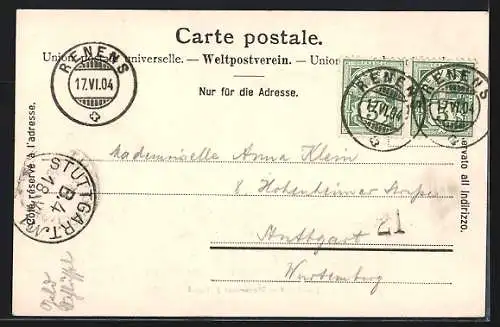 Carte postale.
Union postale universelle. — Weltpostverein. — Union
Nur für die Adresse.
RENENS
17.VI.04
RENENS
17.VI.04
RENENS
VI.04
Côté réservé à l'adresse.
all Indirizzo.
STUTTGART
B.4
18
Mademoiselle Anna Klein
8 Hohenheimer Strasse
21
Stuttgart
Wurtemberg